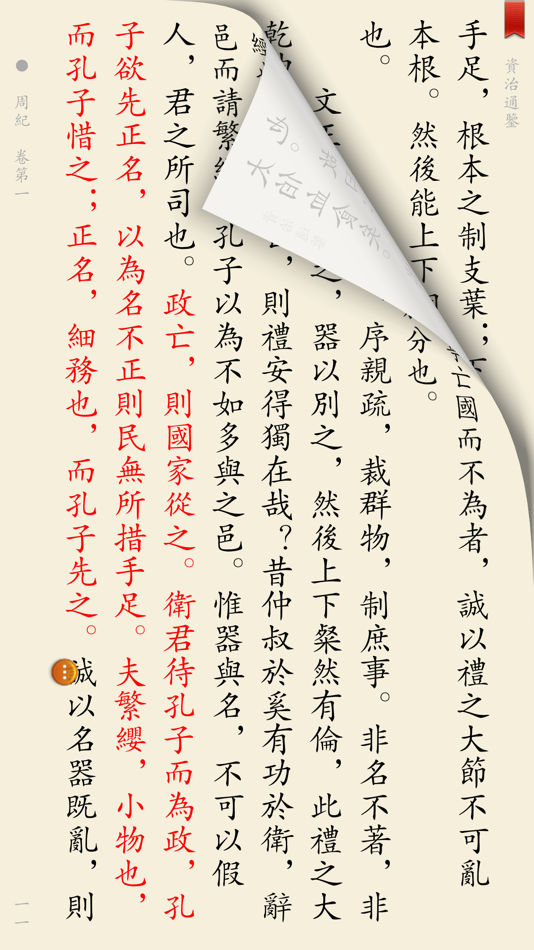 資治通鑒
手足,根本之制支葉;下
亡國而不為者,誠以禮之大節不可亂
本根。然後能上下
分也。
也。
序親疏,裁群物,制庶事。非名不著,非
文王
之,器以別之,然後上下粲然有倫,此禮之大
乾
,則禮安得獨在哉?昔仲叔於奚有功於衛,辭
邑而請繁
孔子以為不如多與之邑。惟器與名,不可以假
人,君之所司也。政亡,則國家從之。衛君待孔子而為政,孔
子欲先正名,以為名不正則民無所措手足。夫繁纓,小物也,
而孔子惜之;正名,細務也,而孔子先之。誠以名器既亂,則
周紀 卷第一
一一